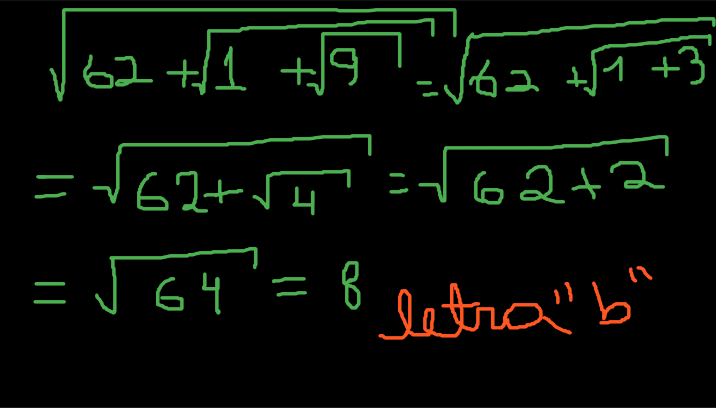 √(62 + √(1 + √9)) = √(62 + √(1 + 3))
= √(62 + √4) = √(62 + 2)
= √64 = 8 letra "b"